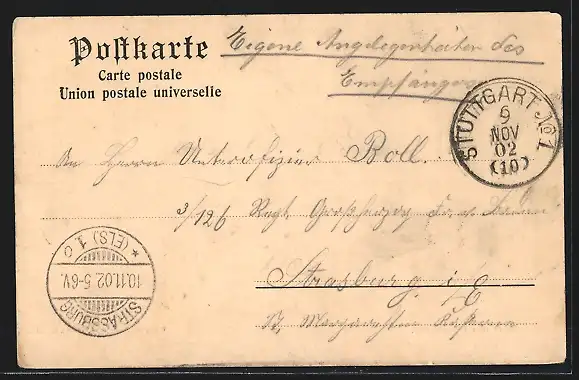 Postkarte
Carte postale
Union postale universelle
Eigene Angelegenheiten des
Empfängers
STUTTGART No 1
9
NOV
02
(10)
An Herrn Unteroffizier Boll.
3/126 Regt Großherzog
Strasburg i/E
STRASSBURG
10.11.02. 5-6V.
* (ELS) 1 o